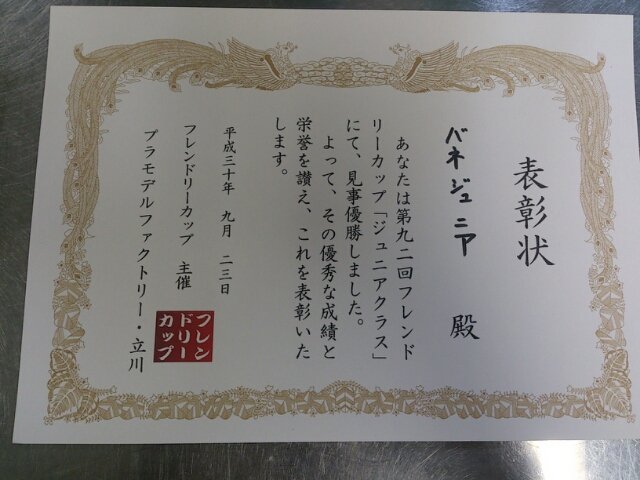 表彰状
バネジュニア 殿
あなたは第九二回フレンド
リーカップ「ジュニアクラス」
にて、見事優勝しました。
よって、その優秀な成績と
栄誉を讃え、これを表彰いた
します。
平成三十年 九月 二三日
フレンドリーカップ 主催
プラモデルファクトリー・立川
フレン
ドリー
カップ